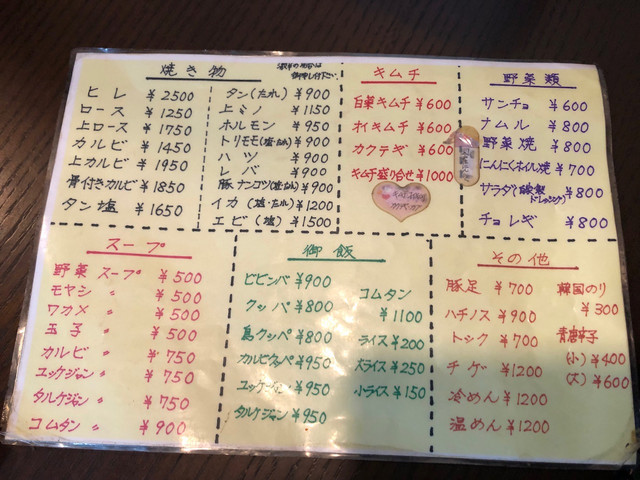 焼き物
ヒレ ¥2500
ロース ¥1250
上ロース ¥1750
カルビ ¥1450
上カルビ ¥1950
骨付きカルビ ¥1850
タン塩 ¥1650
タン(たれ) ¥900
上ミノ ¥1150
ホルモン ¥950
トリモモ(塩・たれ) ¥900
ハツ ¥900
レバ ¥900
豚ナンコツ(塩・たれ) ¥900
イカ(塩・たれ) ¥1200
エビ(塩) ¥1500
キムチ
白菜キムチ ¥600
オイキムチ ¥600
カクテギ ¥600
キムチ盛り合せ ¥1000
野菜類
サンチョ ¥600
ナムル ¥800
野菜焼 ¥800
にんにくホイル焼 ¥700
サラダ(自家製ドレッシング) ¥800
チョレギ ¥800
スープ
野菜スープ ¥500
モヤシ 〃 ¥500
ワカメ 〃 ¥500
玉子 〃 ¥500
カルビ 〃 ¥750
ユッケジャン 〃 ¥750
タルケジャン 〃 ¥750
コムタン 〃 ¥900
御飯
ビビンバ ¥900
クッパ ¥800
鳥クッパ ¥800
カルビクッパ ¥950
ユッケジャン 〃 ¥950
タルケジャン 〃 ¥950
コムタン 〃
¥1100
ライス ¥200
大ライス ¥250
小ライス ¥150
その他
豚足 ¥900
ハチノス ¥900
トック ¥700
チゲ ¥1200
冷めん ¥1200
温めん ¥1200
韓国のり
¥300
青唐辛子
(小) ¥400
(大) ¥600